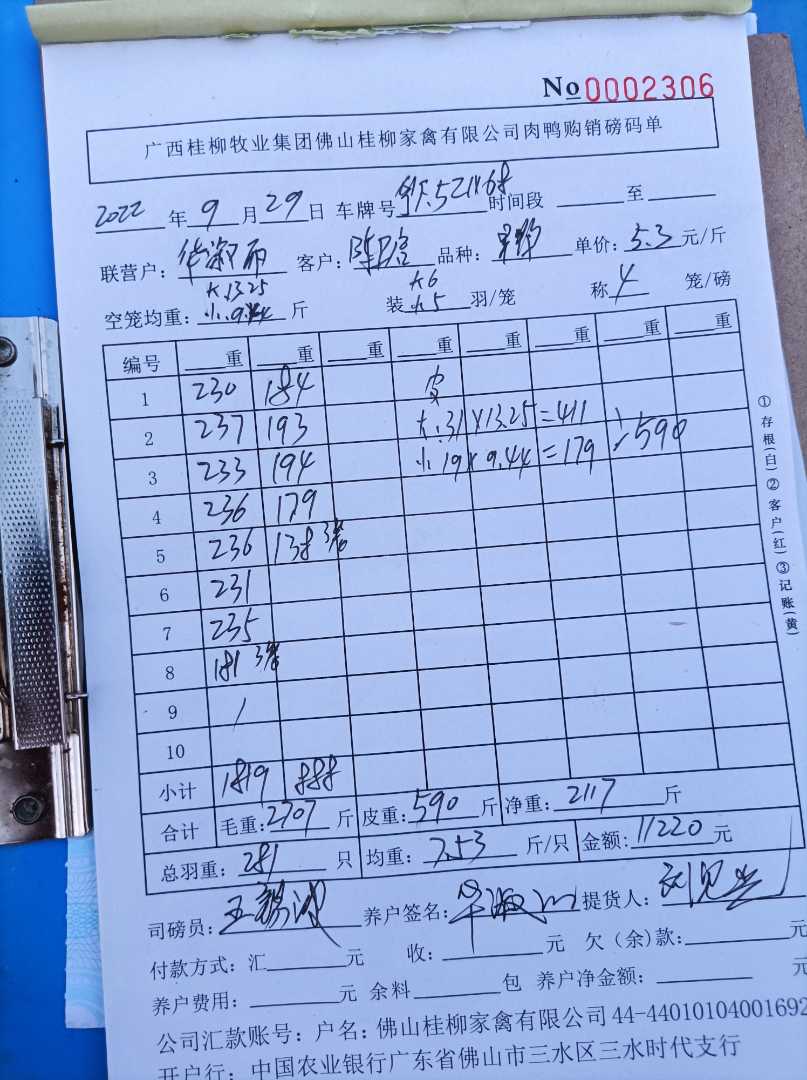 No 0002306
广西桂柳牧业集团佛山桂柳家禽有限公司肉鸭购销磅码单
2022 年 9 月 29 日 车牌号 时间段 至
联营户: 华淑 客户: 陈 品种: 单价: 5.3 元/斤
空笼均重: 大13.25 小9.44 斤 装 大6 小5 羽/笼 称 4 笼/磅
编号 重 重 重 重 重 重 重 重
1 230 184 皮
2 237 193 大:31×13.25=411
3 233 194 小19×9.44=179 590
4 236 179
5 236 138 3笼
6 231
7 235
8 181 3笼
9 /
10
小计 1819 888
合计 毛重: 2707 斤 皮重: 590 斤 净重: 2117 斤
总羽重: 281 只 均重: 7.53 斤/只 金额: 11220 元
司磅员: 王 养户签名: 提货人:
付款方式: 汇 元 收: 元 欠(余)款: 元
养户费用: 元 余料 包 养户净金额: 元
公司汇款账号: 户名: 佛山桂柳家禽有限公司 44-44010104001692
开户行: 中国农业银行广东省佛山市三水区三水时代支行
①存根(白)②客户(红)③记账(黄)